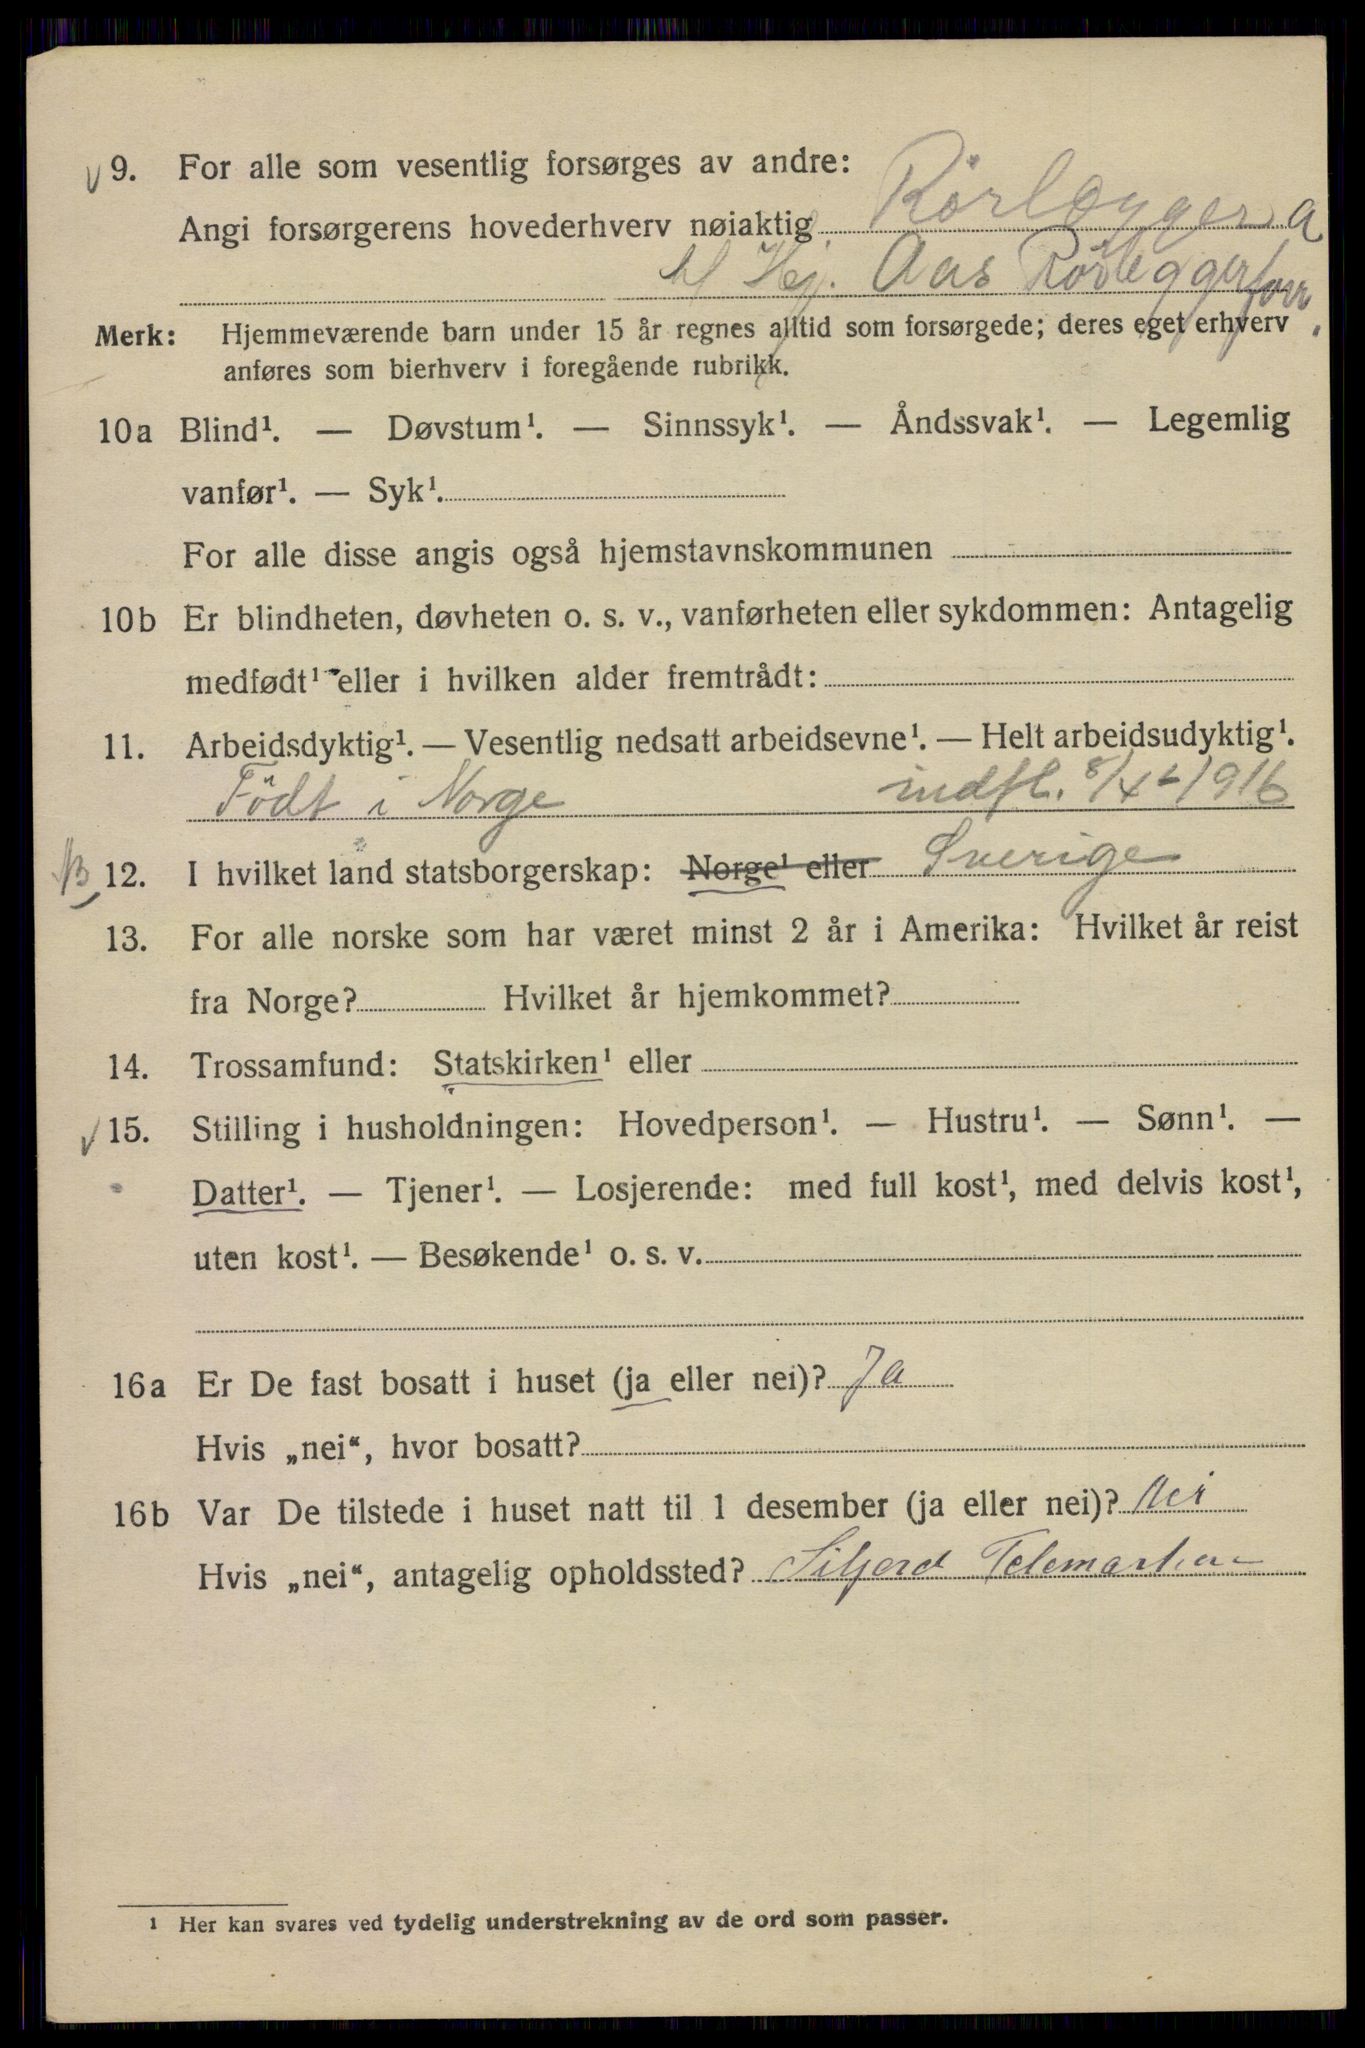 9. For alle som vesentlig forsørges av andre:
Angi forsørgerens hovederhverv nøiaktig Rörlegger a
Hj. Aas Rörleggerforr.
Merk: Hjemmeværende barn under 15 år regnes alltid som forsørgede; deres eget erhverv
anføres som bierhverv i foregående rubrikk.
10a Blind¹. — Døvstum¹. — Sinnssyk¹. — Åndssvak¹. — Legemlig
vanfør¹. — Syk¹.
For alle disse angis også hjemstavnskommunen
10b Er blindheten, døvheten o. s. v., vanførheten eller sykdommen: Antagelig
medfødt¹ eller i hvilken alder fremtrådt:
11. Arbeidsdyktig¹. — Vesentlig nedsatt arbeidsevne¹. — Helt arbeidsudyktig¹.
Födt i Norge indfl. 8/4 1916
12. I hvilket land statsborgerskap: Norge¹ eller Sverige
13. For alle norske som har været minst 2 år i Amerika: Hvilket år reist
fra Norge? Hvilket år hjemkommet?
14. Trossamfund: Statskirken¹ eller
15. Stilling i husholdningen: Hovedperson¹. — Hustru¹. — Sønn¹. —
Datter¹. — Tjener¹. — Losjerende: med full kost¹, med delvis kost¹,
uten kost¹. — Besøkende¹ o. s. v.
16a Er De fast bosatt i huset (ja eller nei)? Ja
Hvis „nei“, hvor bosatt?
16b Var De tilstede i huset natt til 1 desember (ja eller nei)? Nei
Hvis „nei“, antagelig opholdssted? Siljord Telemarken
¹ Her kan svares ved tydelig understrekning av de ord som passer.